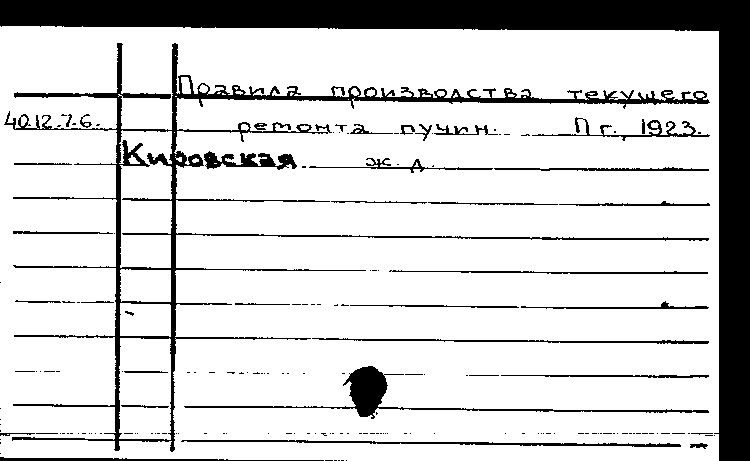 Правила производства текущего
40.12.7.6. ремонта пучин. Пг., 1923.
Кировская ж. д.